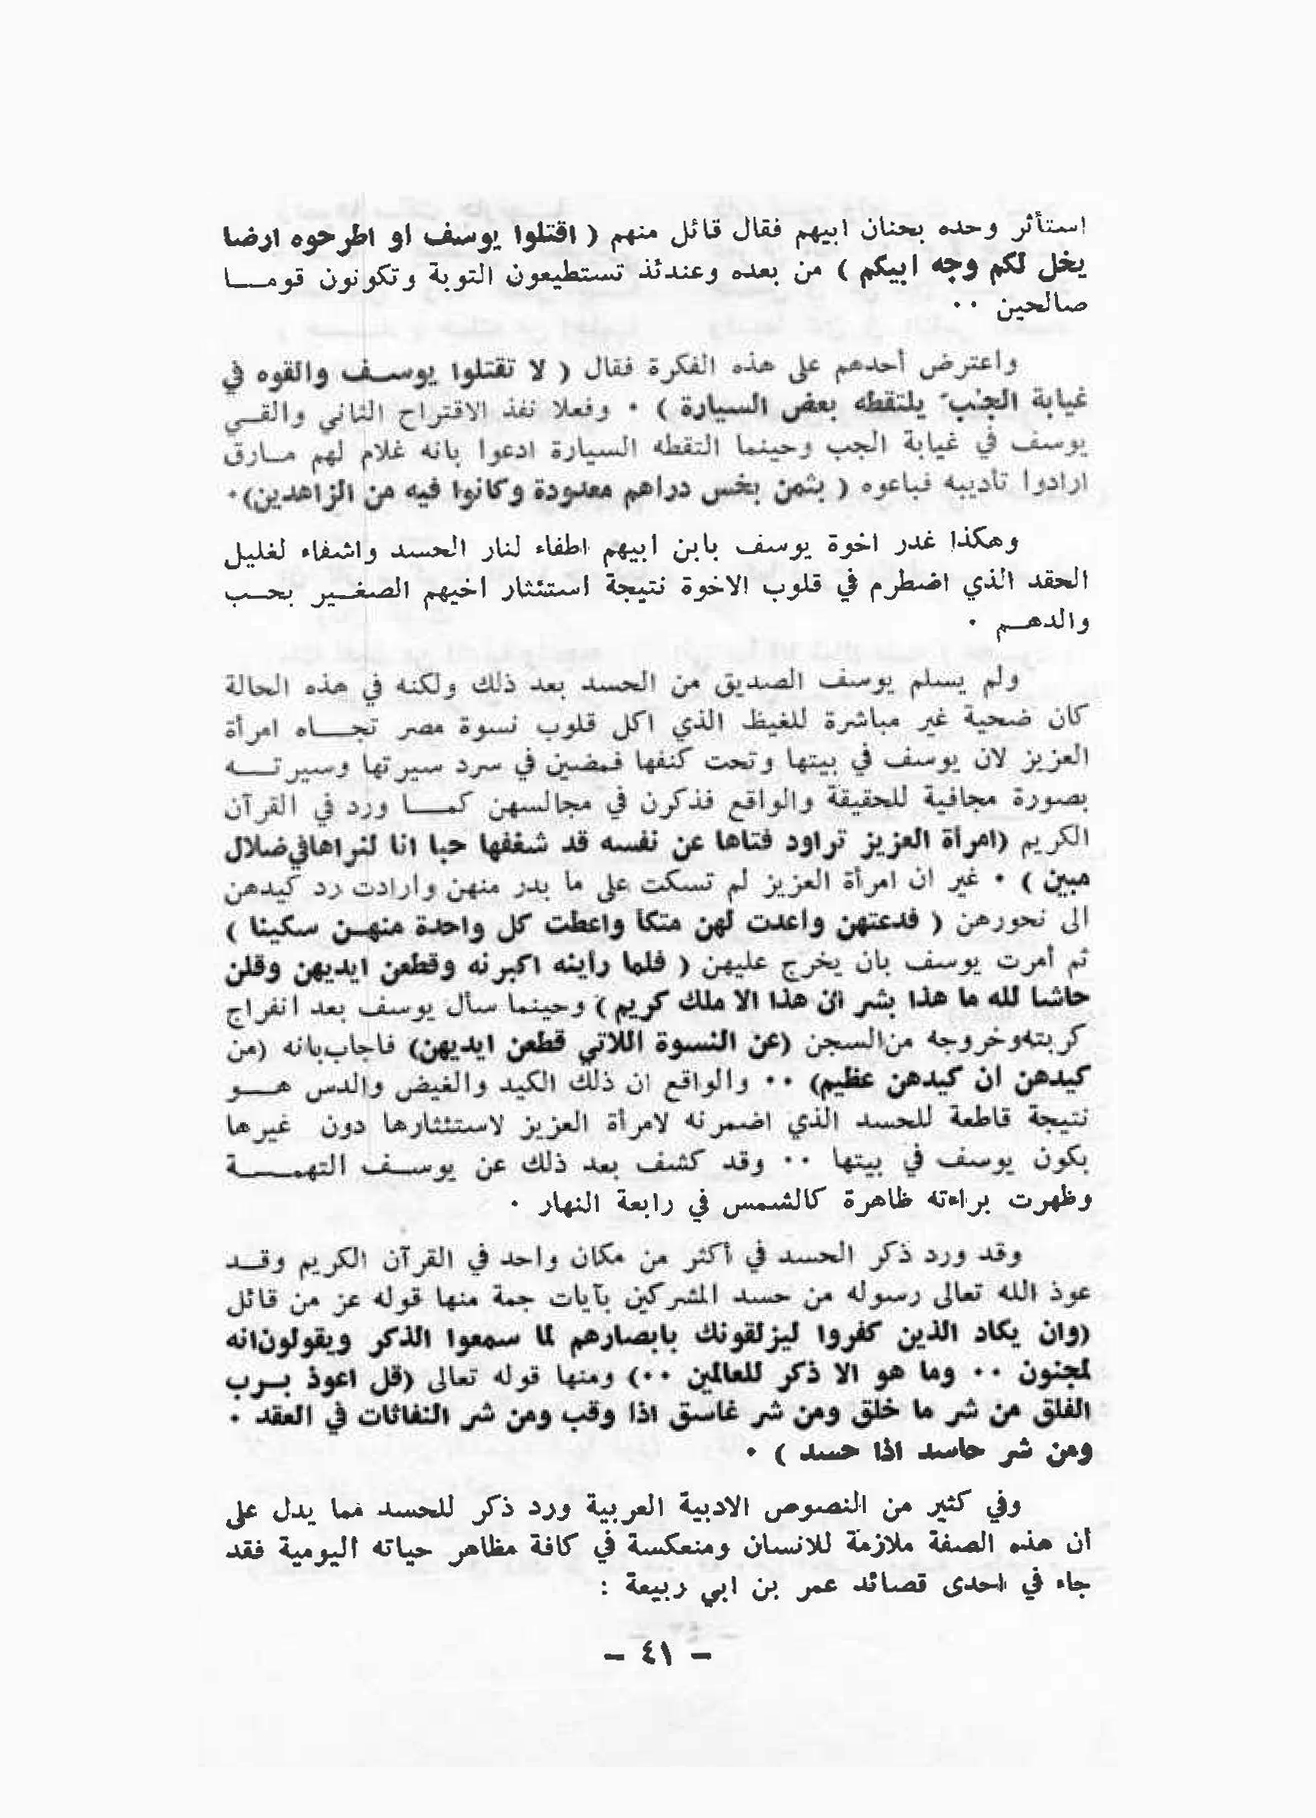 استأثر وحده بحنان ابيهم فقال قائل منهم ( اقتلوا يوسف او اطرحوه ارضا
يخل لكم وجه ابيكم ) من بعده وعندئذ تستطيعون التوبة وتكونون قومـــا
صالحين ٠٠
واعترض أحدهم على هذه الفكرة فقال ( لا تقتلوا يوســف والقوه في
غيابة الجب يلتقطه بعض السيارة ) ٠ وفعلا نفذ الاقتراح الثاني والقــي
يوسف في غيابة الجب وحينما التقطه السيارة ادعوا بانه غلام لهم مــارق
ارادوا تأديبه فباعوه ( بثمن بخس دراهم معدودة وكانوا فيه من الزاهدين)٠
وهكذا غدر اخوة يوسف بابن ابيهم اطفاء لنار الحسد واشفاء لغليل
الحقد الذي اضطرم في قلوب الاخوة نتيجة استئثار اخيهم الصغــير بحــب
والدهــم ٠
ولم يسلم يوسف الصديق من الحسد بعد ذلك ولكنه في هذه الحالة
كان ضحية غير مباشرة للغيظ الذي اكل قلوب نسوة مصر تجـــاه امرأة
العزيز لان يوسف في بيتها وتحت كنفها فمضين في سرد سيرتها وسيرتـــه
بصورة مجافية للحقيقة والواقع فذكرن في مجالسهن كمـــا ورد في القرآن
الكريم (امرأة العزيز تراود فتاها عن نفسه قد شغفها حبا انا لنراها في ضلال
مبين ) ٠ غير ان امرأة العزيز لم تسكت على ما بدر منهن وارادت رد كيدهن
الى نحورهن ( فدعتهن واعدت لهن متكأ واعطت كل واحدة منهــن سكينا )
ثم أمرت يوسف بان يخرج عليهن ( فلما رأينه اكبرنه وقطعن ايديهن وقلن
حاشا لله ما هذا بشر ان هذا الا ملك كريم ) وحينما سأل يوسف بعد انفراج
كربته وخروجه من السجن (عن النسوة اللاتي قطعن ايديهن) فاجاب بانه (من
كيدهن ان كيدهن عظيم) ٠٠ والواقع ان ذلك الكيد والغيض والدس هـــو
نتيجة قاطعة للحسد الذي اضمرنه لامرأة العزيز لاستئثارها دون غيرها
بكون يوسف في بيتها ٠٠ وقد كشف بعد ذلك عن يوســف التهمـــة
وظهرت براءته ظاهرة كالشمس في رابعة النهار ٠
وقد ورد ذكر الحسد في أكثر من مكان واحد في القرآن الكريم وقــد
عوذ الله تعالى رسوله من حسد المشركين بآيات جمة منها قوله عز من قائل
(وان يكاد الذين كفروا ليزلقونك بابصارهم لما سمعوا الذكر ويقولون انه
لمجنون ٠٠ وما هو الا ذكر للعالمين ٠٠) ومنها قوله تعالى (قل اعوذ بــرب
الفلق من شر ما خلق ومن شر غاسق اذا وقب ومن شر النفاثات في العقد ٠
ومن شر حاسد اذا حسد ) ٠
وفي كثير من النصوص الادبية العربية ورد ذكر للحسد مما يدل على
أن هذه الصفة ملازمة للانسان ومنعكسة في كافة مظاهر حياته اليومية فقد
جاء في احدى قصائد عمر بن ابي ربيعة :
– ٤١ –